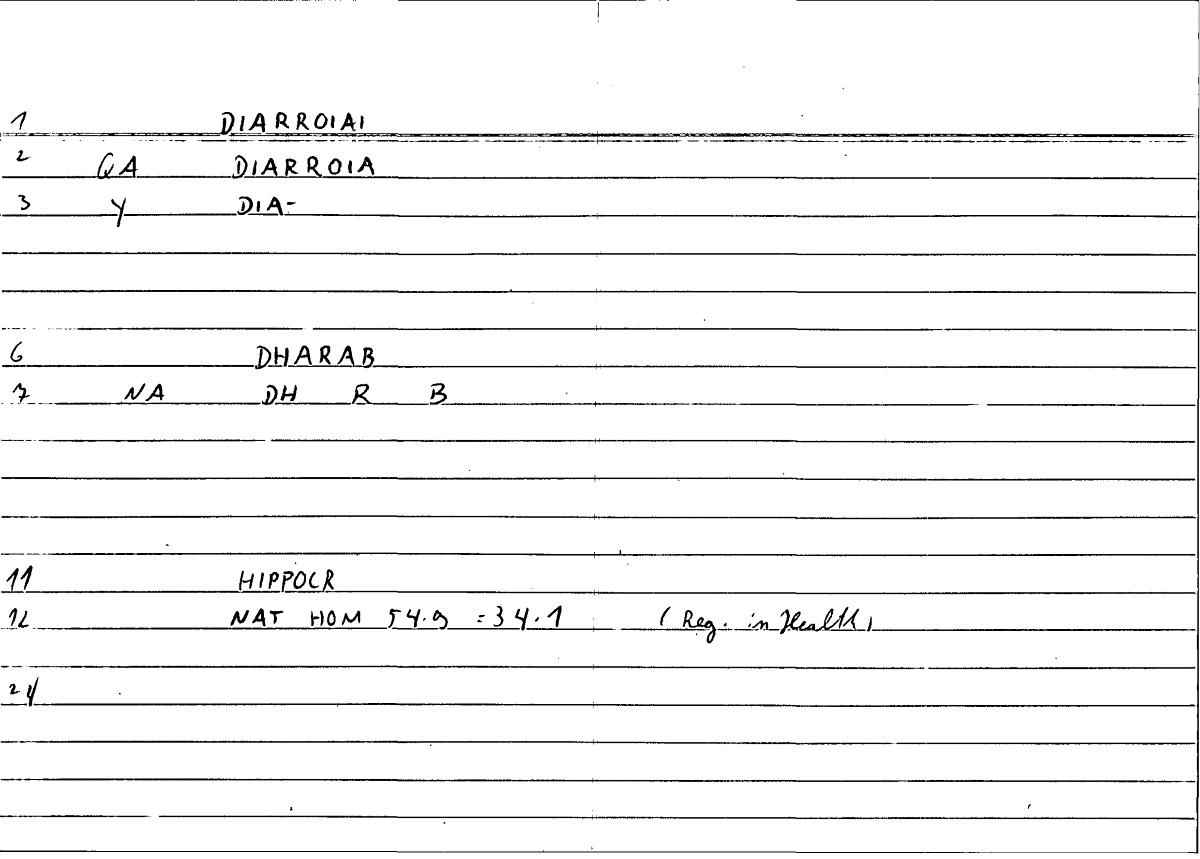 1 DIARROIAI
2 QA DIARROIA
3 Y DIA-
6 DHARAB
7 NA DH R B
11 HIPPOCR
12 NAT HOM 54.9 = 34.1 (Reg. in Health)
24